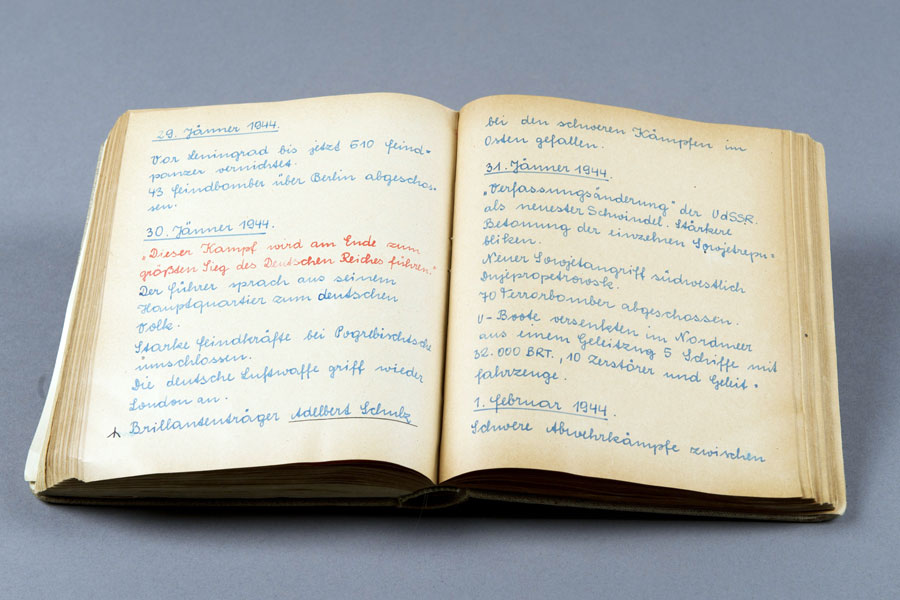 29. Jänner 1944.
Vor Leningrad bis jetzt 610 Feind-
panzer vernichtet.
43 Feindbomber über Berlin abgeschos-
sen.
30. Jänner 1944.
„Dieser Kampf wird am Ende zum
größten Sieg des Deutschen Reiches führen."
Der Führer sprach aus seinem
Hauptquartier zum deutschen
Volk.
Starke Feindkräfte bei Pogrebischtsche
umschlossen.
Die deutsche Luftwaffe griff wieder
London an.
Brillantenträger Adelbert Schulz
bei den schweren Kämpfen im
Osten gefallen.
31. Jänner 1944.
„Verfassungsänderung" der UdSSR.
als neuester Schwindel. Stärkere
Betonung der einzelnen Sowjetrepu-
bliken.
Neuer Sowjetangriff südwestlich
Dnjepropetrowsk.
70 Terrorbomber abgeschossen.
U-Boote versenkten im Nordmeer
aus einem Geleitzug 5 Schiffe mit
32.000 BRT., 10 Zerstörer und Geleit-
fahrzeuge.
1. Februar 1944.
Schwere Abwehrkämpfe zwischen